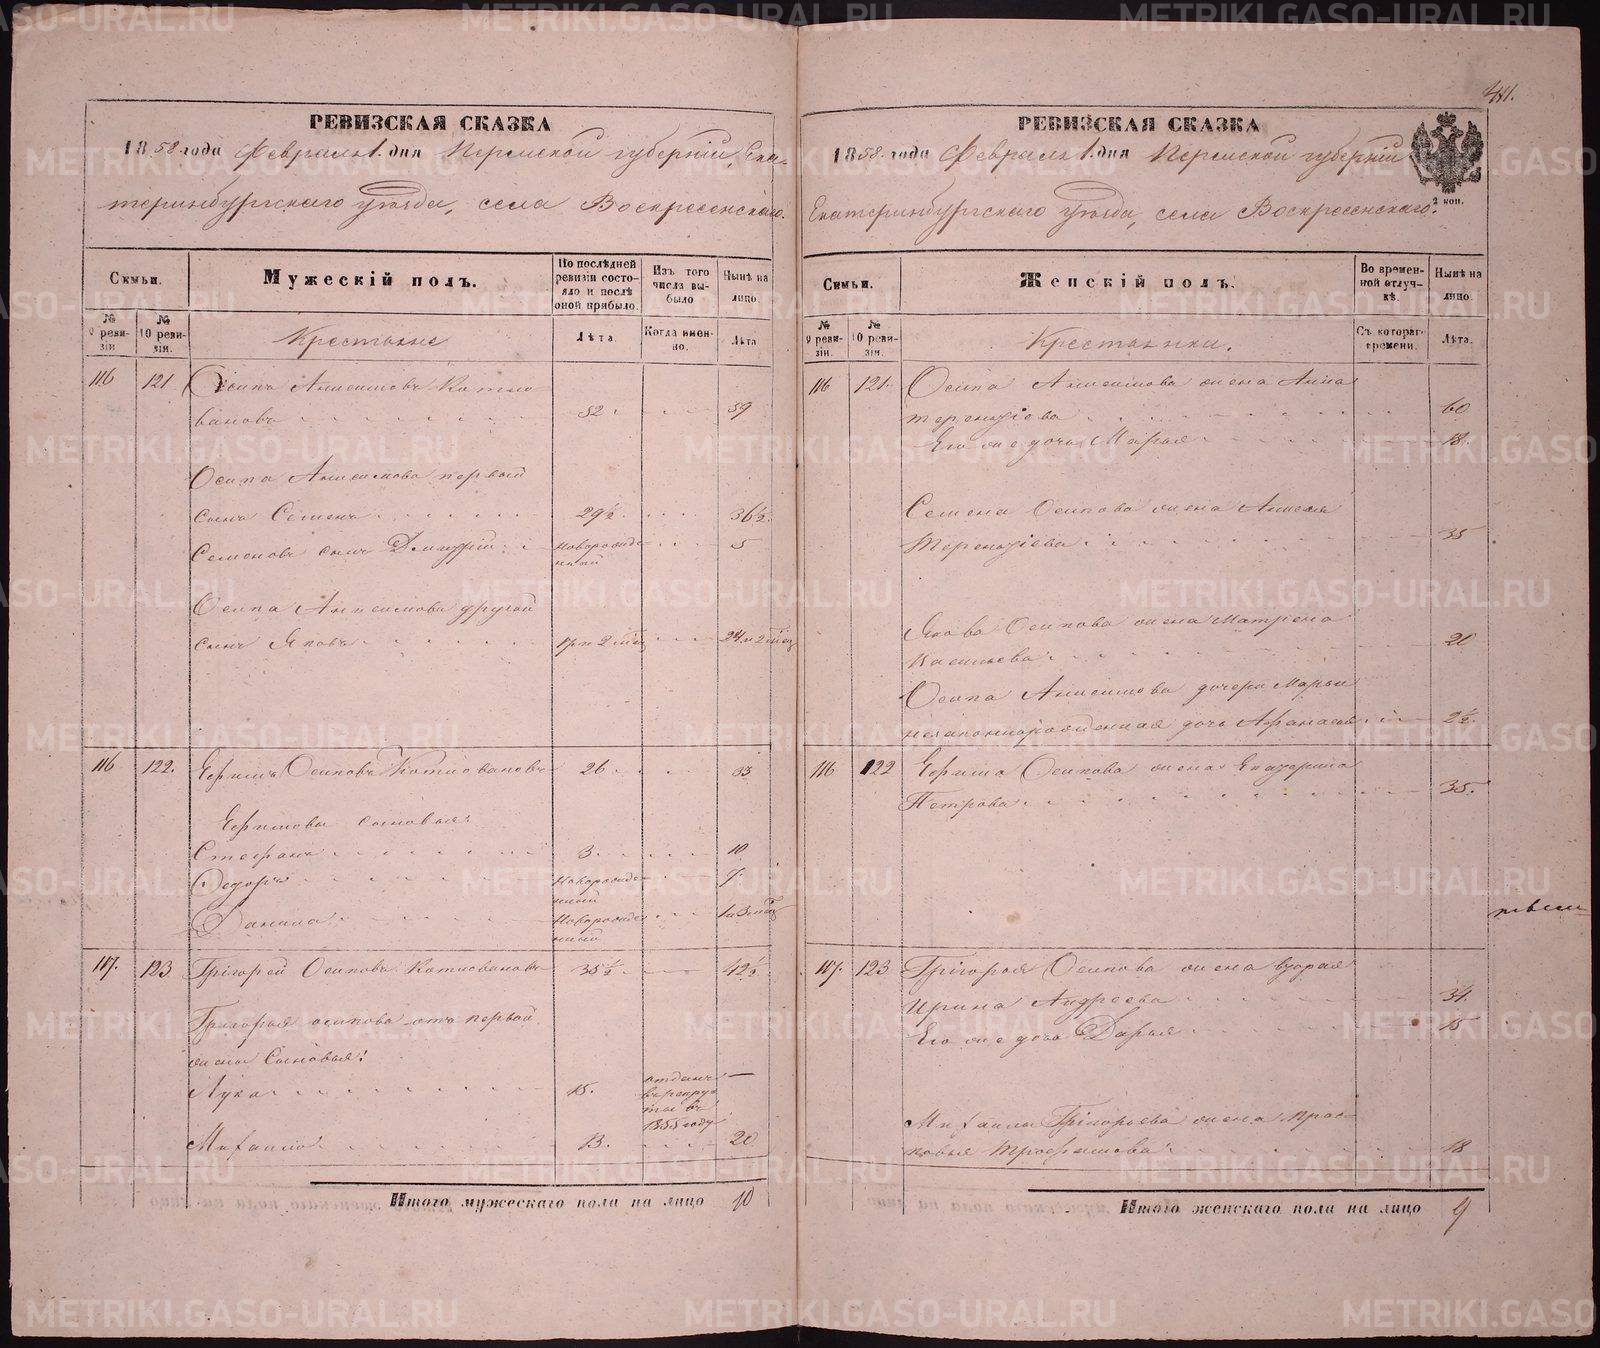 41.
РЕВИЗСКАЯ СКАЗКА
1858 года Февраля 1. дня Пермской губерніи, Ека-
теринбургскаго уѣзда, села Воскресенскаго.
Семьи.
Мужескій полъ.
По послѣдней ревизіи состояло и послѣ оной прибыло.
Изъ того числа выбыло
Нынѣ на лицо.
№ 9 ревизіи
№ 10 ревизіи.
Крестьяне
Лѣта.
Когда именно.
Лѣта
116 121 Осипъ Анисимовъ Котло-
вановъ 52 59
Осипа Анисимова первый
сынъ Семенъ 29½ 36½
Семеновъ сынъ Дмитрій новорожде-
нный 5
Осипа Анисимова другой
сынъ Яковъ 17 и 2 мѣс 24 и 2 мѣсяц
116 122. Ефимъ Осиповъ Котловановъ 26 33
Ефимовы сыновья:
Стефанъ 3 10
Федоръ новорожде-
нный 7
Данила новорожде-
нный 1 и 3 мѣс
117. 123 Григорей Осиповъ Котловановъ 35½ 42½
Григорья Осипова отъ первой
жены сыновья:
Лука 15. отданъ
въ рекру-
ты въ
1855 году —
Михаило 13. 20
Итого мужескаго пола на лицо 10
РЕВИЗСКАЯ СКАЗКА
1858 года Февраля 1. дня Пермской губерніи
Екатеринбургскаго уѣзда, села Воскресенскаго.
2 коп.
Семьи.
Женскій полъ.
Во временной отлучкѣ.
Нынѣ на лицо.
№ 9 ревизіи.
№ 10 ревизіи.
Крестьянки.
Съ котораго времени.
Лѣта.
116 121. Осипа Анисимова жена Анна
Терентіева 60
Его же дочь Марья 18.
Семена Осипова жена Анисья
Терентіева 35
Якова Осипова жена Матрена
Васильева 20
Осипа Анисимова дочери Марьи
незаконнорожденная дочь Афанасья 2½.
116 122 Ефима Осипова жена Екатерина
Петрова 35.
117. 123 Григорья Осипова жена вторая
Ирина Андреева 34.
Его же дочь Дарья 15
Михаилы Григорьева жена Прас-
ковья Трофимова 18
Итого женскаго пола на лицо 9
METRIKI.GASO-URAL.RU